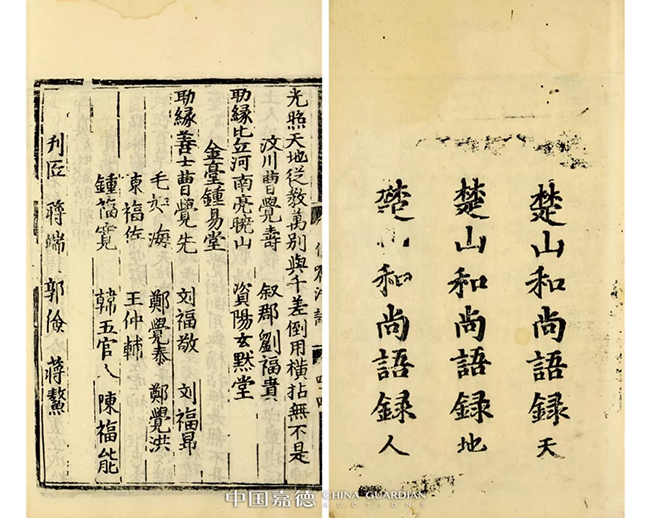 楚山和尚語録 天
楚山和尚語録 地
楚山和尚語録 人
光照天地從教萬別與千差倒用橫拈無不是
汶川曹覺壽 叙郡劉福貴
助緣比丘河南亮曉山 資陽玄默堂
金臺鍾易堂
助緣善士曹覺先 刘福敬 刘福昻
毛 海 鄭覺泰 鄭覺洪
東福 王仲輔
鍾福寬 韓五官 陳福能
刋匠 蔣端 郭儉 蔣鰲
中国嘉德 CHINA GUARDIAN
AUCTIONS